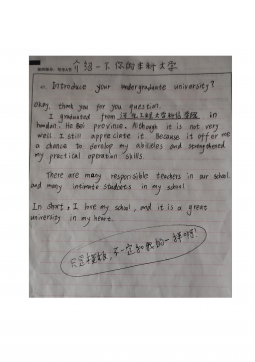 介绍一下你的本科大学
Introduce your undergraduate university?
Okay, thank you for you question.
I graduated from 河北工程大学科信学院 in
handan, He Bei province. Although it is not very
well I still appreciate it. Because it offer me
a chance to develop my abilities and strengthened
my practical operation skills.
There are many responsible teachers in our school.
and many intimate students in my school.
In short, I love my school, and it is a great
university in my heart.
只是模板,不一定和我的一样呀!